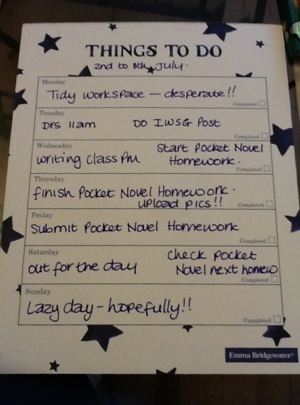 THINGS TO DO
2nd to 8th July.
Monday
Tidy workspace - desperate!!
Completed
Tuesday
Drs 11am DO IWSG Post
Completed
Wednesday
Start Pocket Novel
writing class pm Homework.
Completed
Thursday
finish Pocket Novel Homework.
upload pics!!
Completed
Friday
Submit Pocket Novel Homework
Completed
Saturday
Check Pocket
out for the day Novel next homew
Completed
Sunday
Lazy day - hopefully!!
Completed
Emma Bridgewater